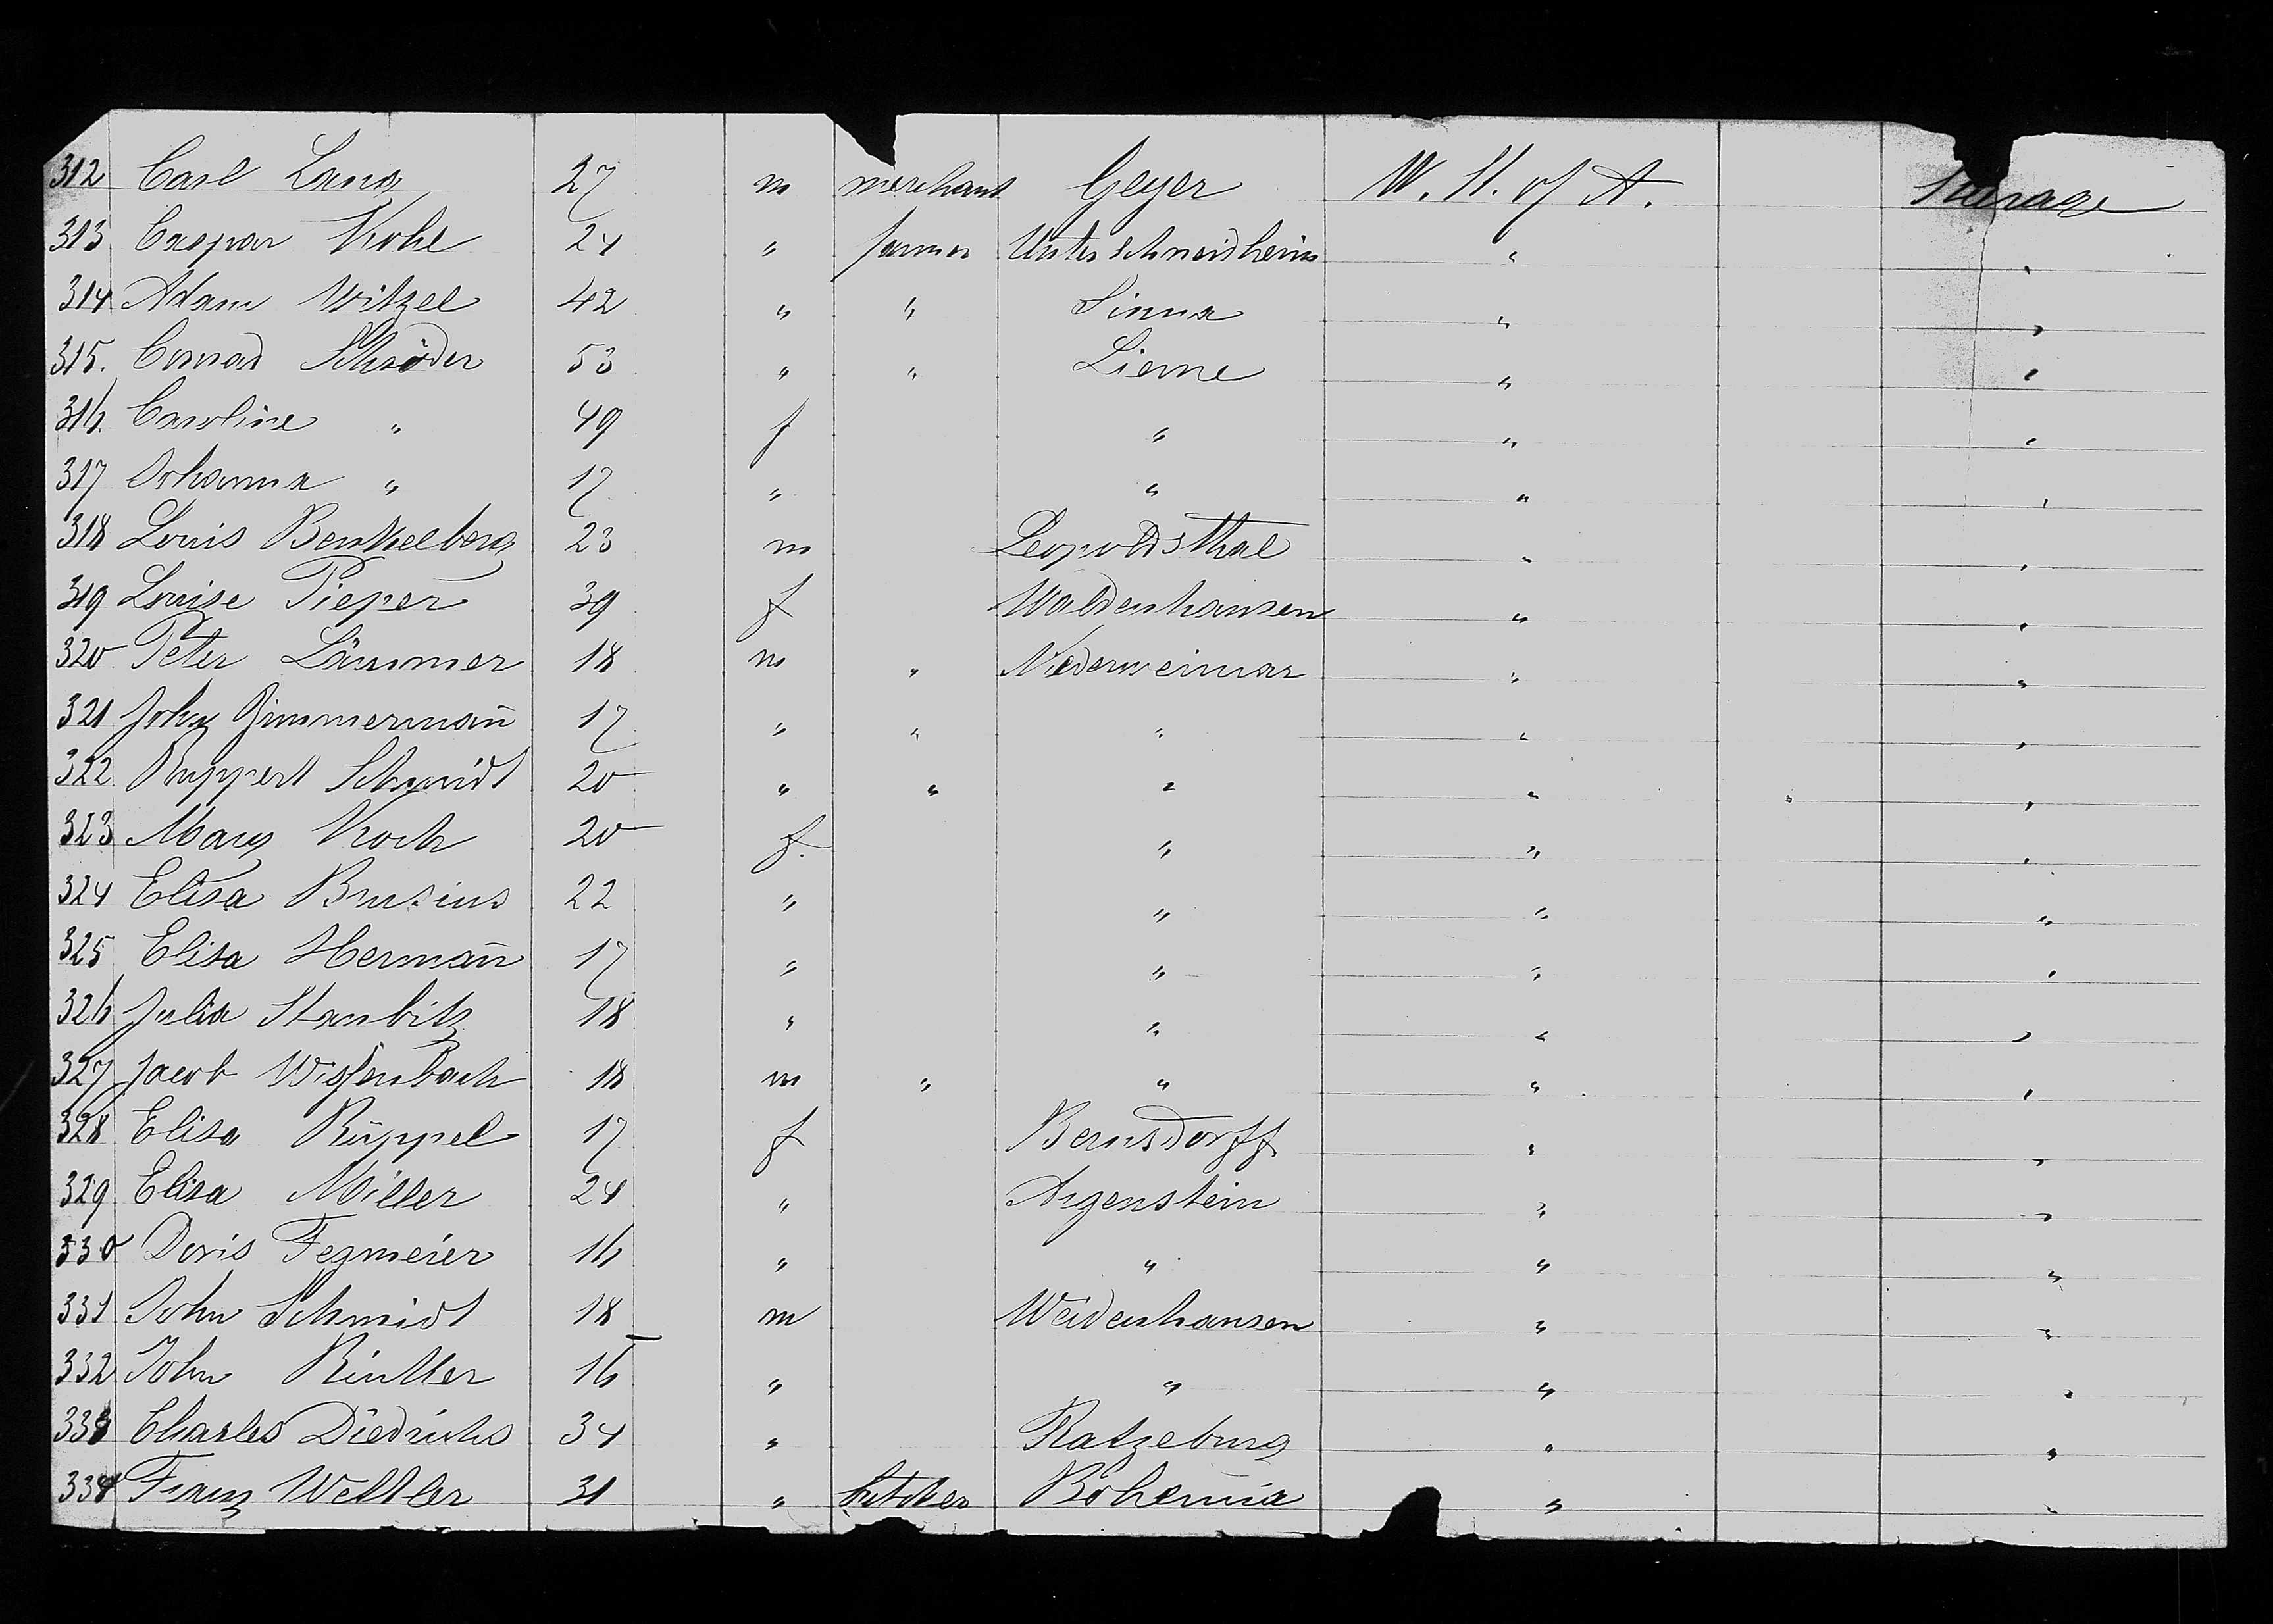 312 Carl Lang 27 m merchant Geyer W. St. of A. Steerage
313 Caspar Kohl 24 " farmer Unterschneidheim " "
314 Adam Witzel 42 " " Sinna " "
315. Conrad Schröder 53 " " Lieme " "
316. Caroline " 49 f " " "
317 Johanna " 17 " " " "
318 Louis Benkelberg 23 m Leopoldsthal " "
319 Louise Pieper 39 f Waldenhausen " "
320 Peter Lämmer 18 m " Niederweimar " "
321 John Zimmermañ 17 " " " " "
322 Ruppert Schmidt 20 " " " " "
323 Mary Koch 20 f. " " "
324 Elisa Brusius 22 " " " "
325 Elisa Hermañ 17 " " " "
326 Julia Staubitz 18 " " " "
327 Jacob Wissenbach 18 m " " " "
328 Elisa Rüppel 17 f Bernsdorff " "
329 Elisa Miller 24 " Argenstein " "
330 Doris Fegmeier 16 " " " "
331 John Schmidt 18 m Weidenhausen " "
332 John Rintler 16 " " " "
333 Charles Diedrichs 34 " Ratzeburg " "
334 Franz Weltler 31 " butcher Bohemia " "